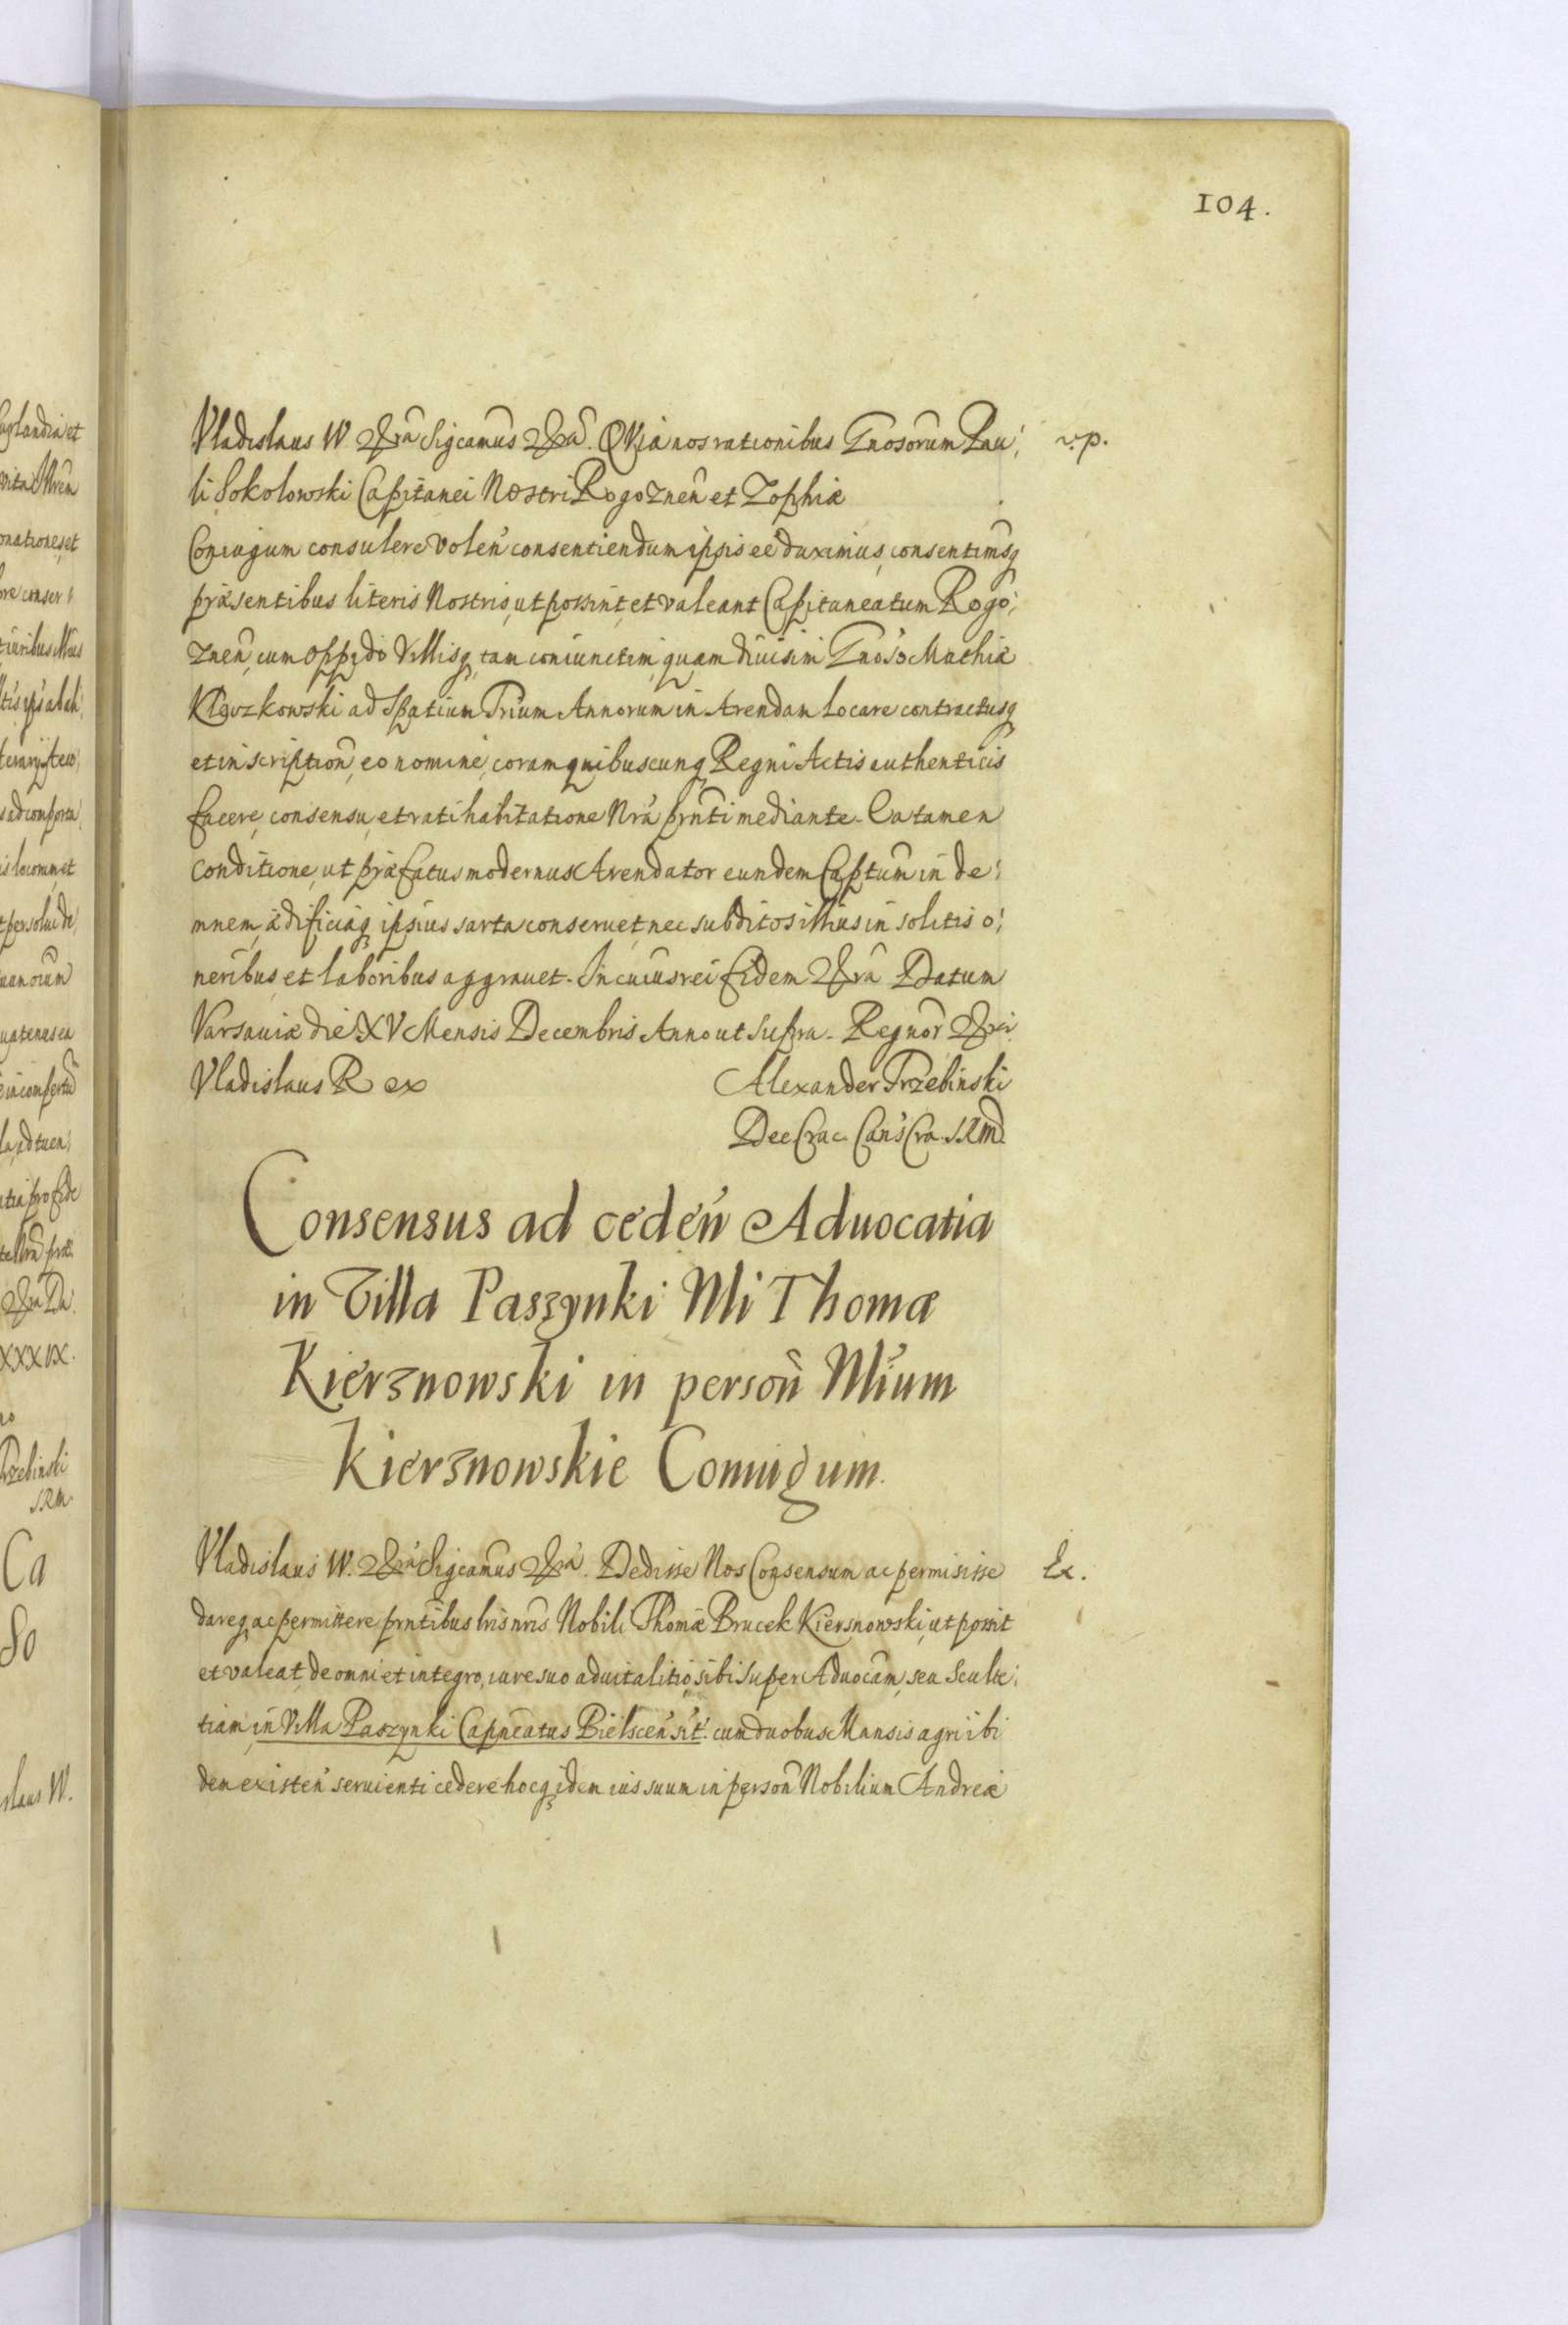 104.
Vladislaus W. &cra Sigcamus &cra. QVia nos rationibus Gnosorum Pau: v.p.
li Sokolowski Capitanei Nostri Rogoznen et Zophiæ
Coniugum consulere volen consentiendum ipsis ee duximus, consentimusq
præsentibus literis Nostris, ut possint, et valeant Capitaneatum Rogo:
znen, cum oppido Villisq, tam coniunctim, quam diuisim Gnoso Mathiæ
ad Spatium Trium Annorum in Arendam Locare contractusq
et inscription, eo nomine, coram quibuscunq Regni Actis authenticis
facere, consensu, et ratihabitatione Nra prnti mediante. Ea tamen
conditione, ut præfatus modernus Arendator eundem Captum in de:
mnem, ædificiaq ipsius sarta conseruet, nec subditos illius in solitis o:
neribus, et laboribus aggrauet. In cuius rei fidem &cra Datum
Varsauiæ die XV Mensis Decembris Anno ut supra. Regnor &cri
Vladislaus Rex Alexander Trzebinski
Dec Crac. Cans Cra. S.R.M
Consensus ad ceden Aduocatia
in Villa Paszynki Nli Thomæ
Kierznowski in person Nlium
Kierznowskie Coniugum.
Vladislaus W. &cra Sigcamus &cra. Dedisse Nos Consensum ac permisisse Ex.
dareq, ac permittere prntibus lris nris Nobili Thomæ Brucek Kiersnowski, ut possit
et valeat, de omni et integro, iure suo aduitalitio, sibi super Aduocam, seu Sculte:
tiam, in Villa Paszynki Capneatus Bielscen sit. cum duobus Mansis agri ibi
dem existen seruienti cedere hocq idem ius suum in person Nobilium Andreæ